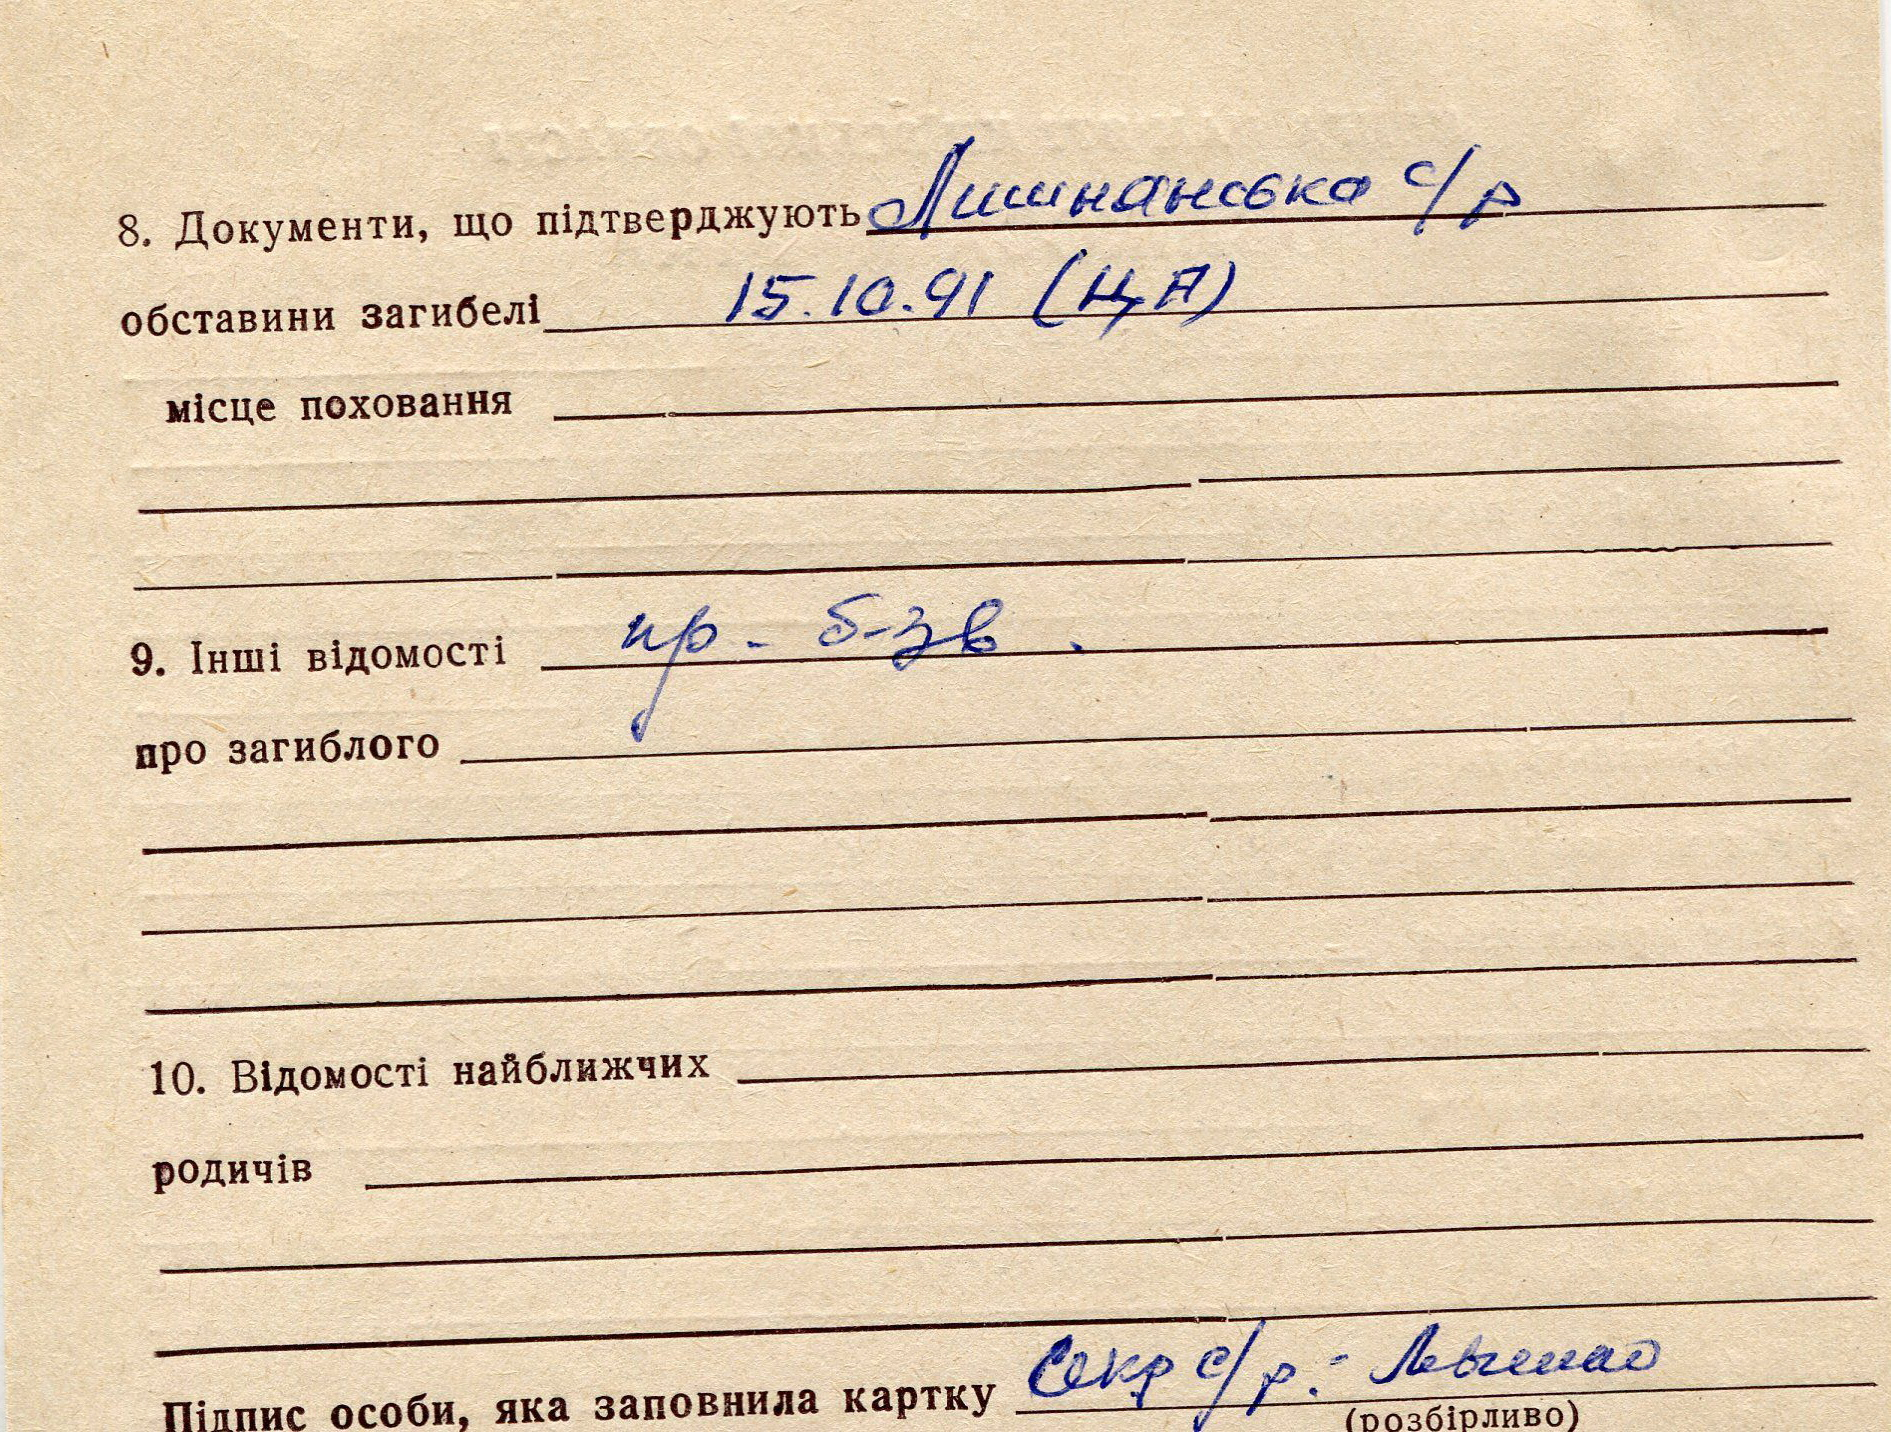 8. Документи, що підтверджують Лишнянська с/р
обставини загибелі 15.10.91 (ЦА)
місце поховання
9. Інші відомості пр. б-зв.
про загиблого
10. Відомості найближчих
родичів
Підпис особи, яка заповнила картку Секр с/р.-
(розбірливо)